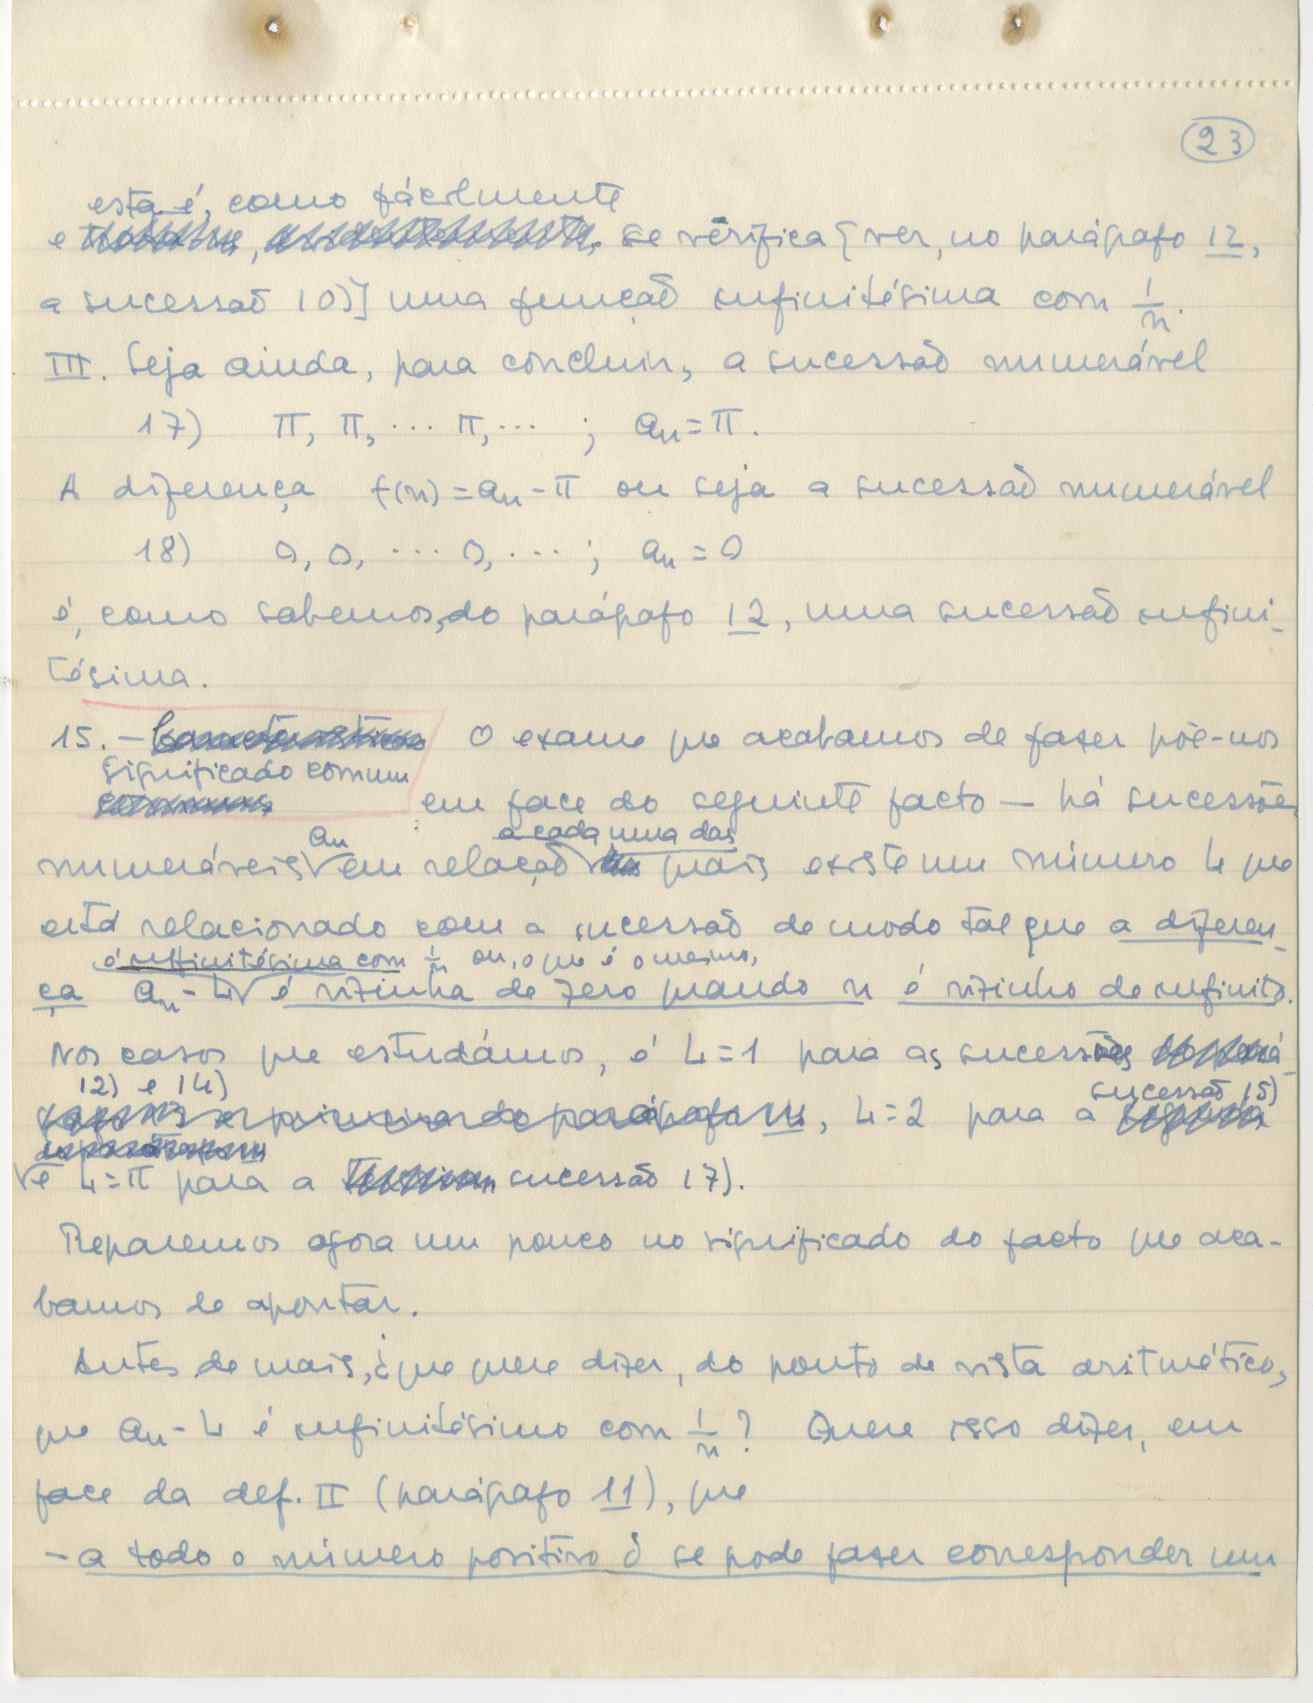 23
esta é, como fácilmente
e se verifica [ver, no parágrafo 12,
a sucessão 10)] uma função infinitésima com 1/n.
III. Seja ainda, para concluir, a sucessão numerável
17) π, π, ... π, ... ; an = π.
A diferença f(n) = an - π ou seja a sucessão numerável
18) 0, 0, ... 0, ... ; an = 0
é, como sabemos, do parágrafo 12, uma sucessão infini-
tésima.
15. - O exame que acabamos de fazer põe-nos
significado comum
em face do seguinte facto — há sucessões
an a cada uma das
numeráveis em relação quais existe um número L que
está relacionado com a sucessão de modo tal que a diferen-
é infinitésima com 1/n ou, o que é o mesmo,
ça an - L é vizinha de zero quando n é vizinho de infinito.
Nos casos que estudámos, é L=1 para as sucessões
12) e 14) sucessão 15)
, L=2 para a
e L=π para a sucessão 17).
Reparemos agora um pouco no significado do facto que aca-
bamos de apontar.
Antes de mais, ¿que quere dizer, do ponto de vista aritmético,
que an - L é infinitésimo com 1/n? Quere isso dizer, em
face da def. II (parágrafo 11), que
- a todo o número positivo δ se pode fazer corresponder um